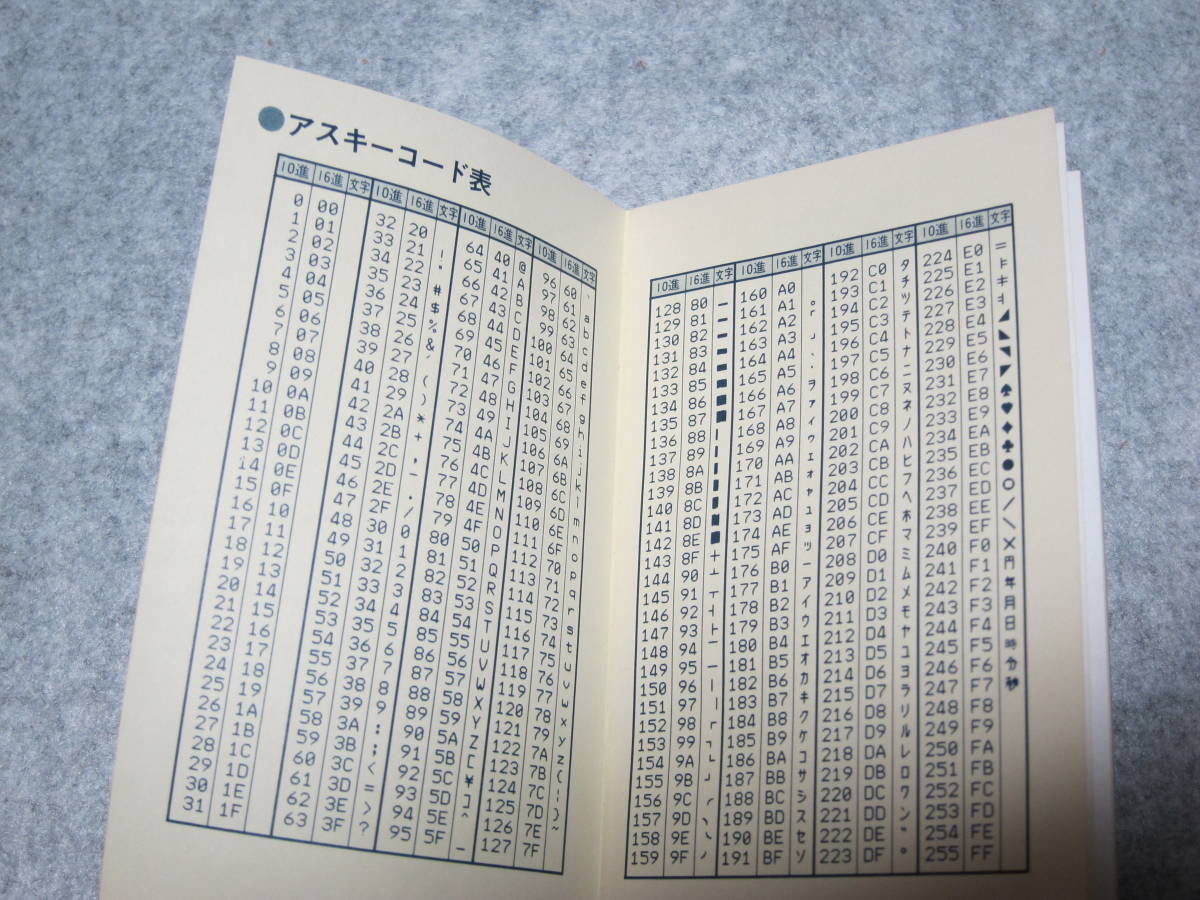 アスキーコード表
10進 16進 文字 10進 16進 文字 10進 16進 文字 10進 16進 文字
0 00 32 20 64 40 @ 96 60 `
1 01 33 21 ! 65 41 A 97 61 a
2 02 34 22 " 66 42 B 98 62 b
3 03 35 23 # 67 43 C 99 63 c
4 04 36 24 $ 68 44 D 100 64 d
5 05 37 25 % 69 45 E 101 65 e
6 06 38 26 & 70 46 F 102 66 f
7 07 39 27 ' 71 47 G 103 67 g
8 08 40 28 ( 72 48 H 104 68 h
9 09 41 29 ) 73 49 I 105 69 i
10 0A 42 2A * 74 4A J 106 6A j
11 0B 43 2B + 75 4B K 107 6B k
12 0C 44 2C , 76 4C L 108 6C l
13 0D 45 2D - 77 4D M 109 6D m
14 0E 46 2E . 78 4E N 110 6E n
15 0F 47 2F / 79 4F O 111 6F o
16 10 48 30 0 80 50 P 112 70 p
17 11 49 31 1 81 51 Q 113 71 q
18 12 50 32 2 82 52 R 114 72 r
19 13 51 33 3 83 53 S 115 73 s
20 14 52 34 4 84 54 T 116 74 t
21 15 53 35 5 85 55 U 117 75 u
22 16 54 36 6 86 56 V 118 76 v
23 17 55 37 7 87 57 W 119 77 w
24 18 56 38 8 88 58 X 120 78 x
25 19 57 39 9 89 59 Y 121 79 y
26 1A 58 3A : 90 5A Z 122 7A z
27 1B 59 3B ; 91 5B [ 123 7B {
28 1C 60 3C < 92 5C ¥ 124 7C ¦
29 1D 61 3D = 93 5D ] 125 7D }
30 1E 62 3E > 94 5E ^ 126 7E ~
31 1F 63 3F ? 95 5F _ 127 7F
10進 16進 文字 10進 16進 文字 10進 16進 文字 10進 16進 文字
128 80 ▁ 160 A0 192 C0 タ 224 E0 ═
129 81 ▂ 161 A1 。 193 C1 チ 225 E1 ╞
130 82 ▃ 162 A2 「 194 C2 ツ 226 E2 ╪
131 83 ▄ 163 A3 」 195 C3 テ 227 E3 ╡
132 84 ▅ 164 A4 、 196 C4 ト 228 E4 ◢
133 85 ▆ 165 A5 ・ 197 C5 ナ 229 E5 ◣
134 86 ▇ 166 A6 ヲ 198 C6 ニ 230 E6 ◥
135 87 █ 167 A7 ァ 199 C7 ヌ 231 E7 ◤
136 88 ▏ 168 A8 ィ 200 C8 ネ 232 E8 ♠
137 89 ▎ 169 A9 ゥ 201 C9 ノ 233 E9 ♥
138 8A ▍ 170 AA ェ 202 CA ハ 234 EA ♦
139 8B ▌ 171 AB ォ 203 CB ヒ 235 EB ♣
140 8C ▋ 172 AC ャ 204 CC フ 236 EC ●
141 8D ▊ 173 AD ュ 205 CD ヘ 237 ED ○
142 8E ▉ 174 AE ョ 206 CE ホ 238 EE ╱
143 8F ┼ 175 AF ッ 207 CF マ 239 EF ╲
144 90 ┴ 176 B0 ー 208 D0 ミ 240 F0 ╳
145 91 ┬ 177 B1 ア 209 D1 ム 241 F1 円
146 92 ┤ 178 B2 イ 210 D2 メ 242 F2 年
147 93 ├ 179 B3 ウ 211 D3 モ 243 F3 月
148 94 ▔ 180 B4 エ 212 D4 ヤ 244 F4 日
149 95 ─ 181 B5 オ 213 D5 ユ 245 F5 時
150 96 │ 182 B6 カ 214 D6 ヨ 246 F6 分
151 97 ▕ 183 B7 キ 215 D7 ラ 247 F7 秒
152 98 ┌ 184 B8 ク 216 D8 リ 248 F8
153 99 ┐ 185 B9 ケ 217 D9 ル 249 F9
154 9A └ 186 BA コ 218 DA レ 250 FA
155 9B ┘ 187 BB サ 219 DB ロ 251 FB
156 9C ╭ 188 BC シ 220 DC ワ 252 FC
157 9D ╮ 189 BD ス 221 DD ン 253 FD
158 9E ╰ 190 BE セ 222 DE ゛ 254 FE
159 9F ╯ 191 BF ソ 223 DF ゜ 255 FF